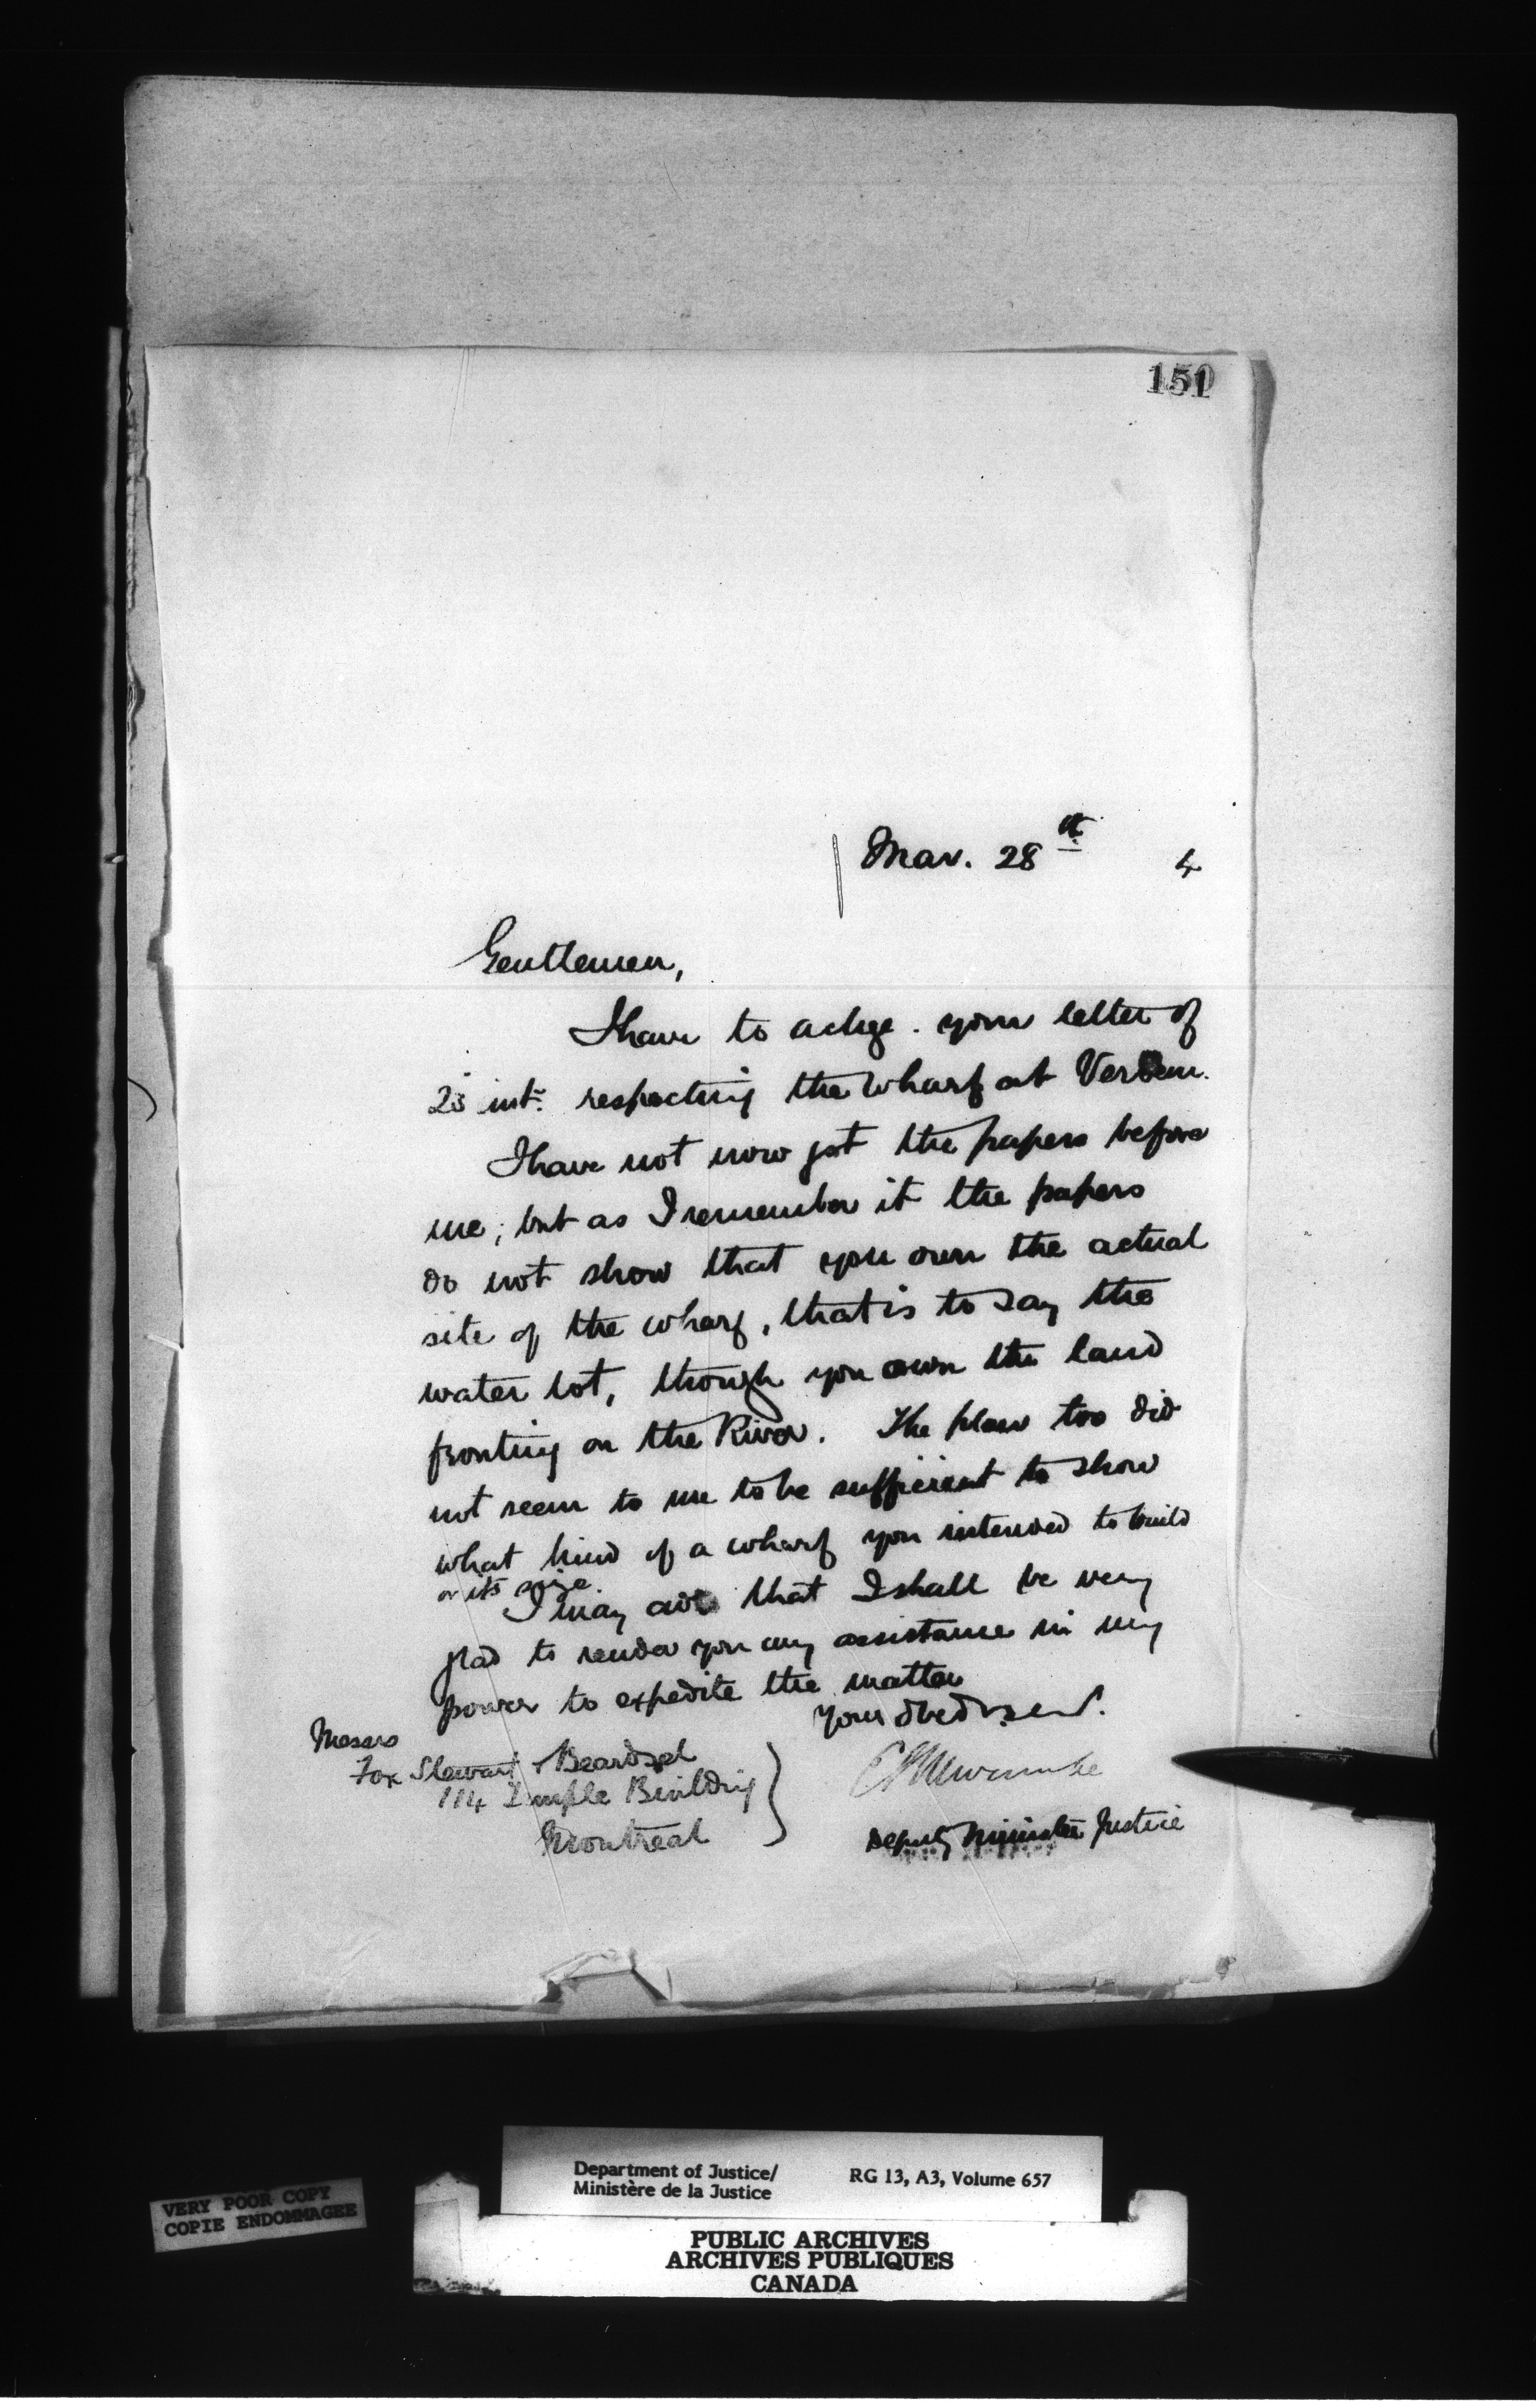 151
Mar. 28th 4
Gentlemen,
I have to ackge. your letter of
23 inst. respecting the wharf at Verdun.
I have not now got the papers before
me; but as I remember it the papers
do not show that you own the actual
site of the wharf, that is to say the
water lot, though you own the land
fronting on the River. The plan too did
not seem to me to be sufficient to show
what kind of a wharf you intended to build
or its size.
I may add that I shall be very
glad to render you any assistance in my
power to expedite the matter
Your obed. serv.
Messrs
Fox Stewart Beardsel
114 Temple Building
Montreal
E L Newcombe
Deputy Minister Justice
Department of Justice/
Ministère de la Justice
RG 13, A3, Volume 657
VERY POOR COPY
COPIE ENDOMMAGEE
PUBLIC ARCHIVES
ARCHIVES PUBLIQUES
CANADA